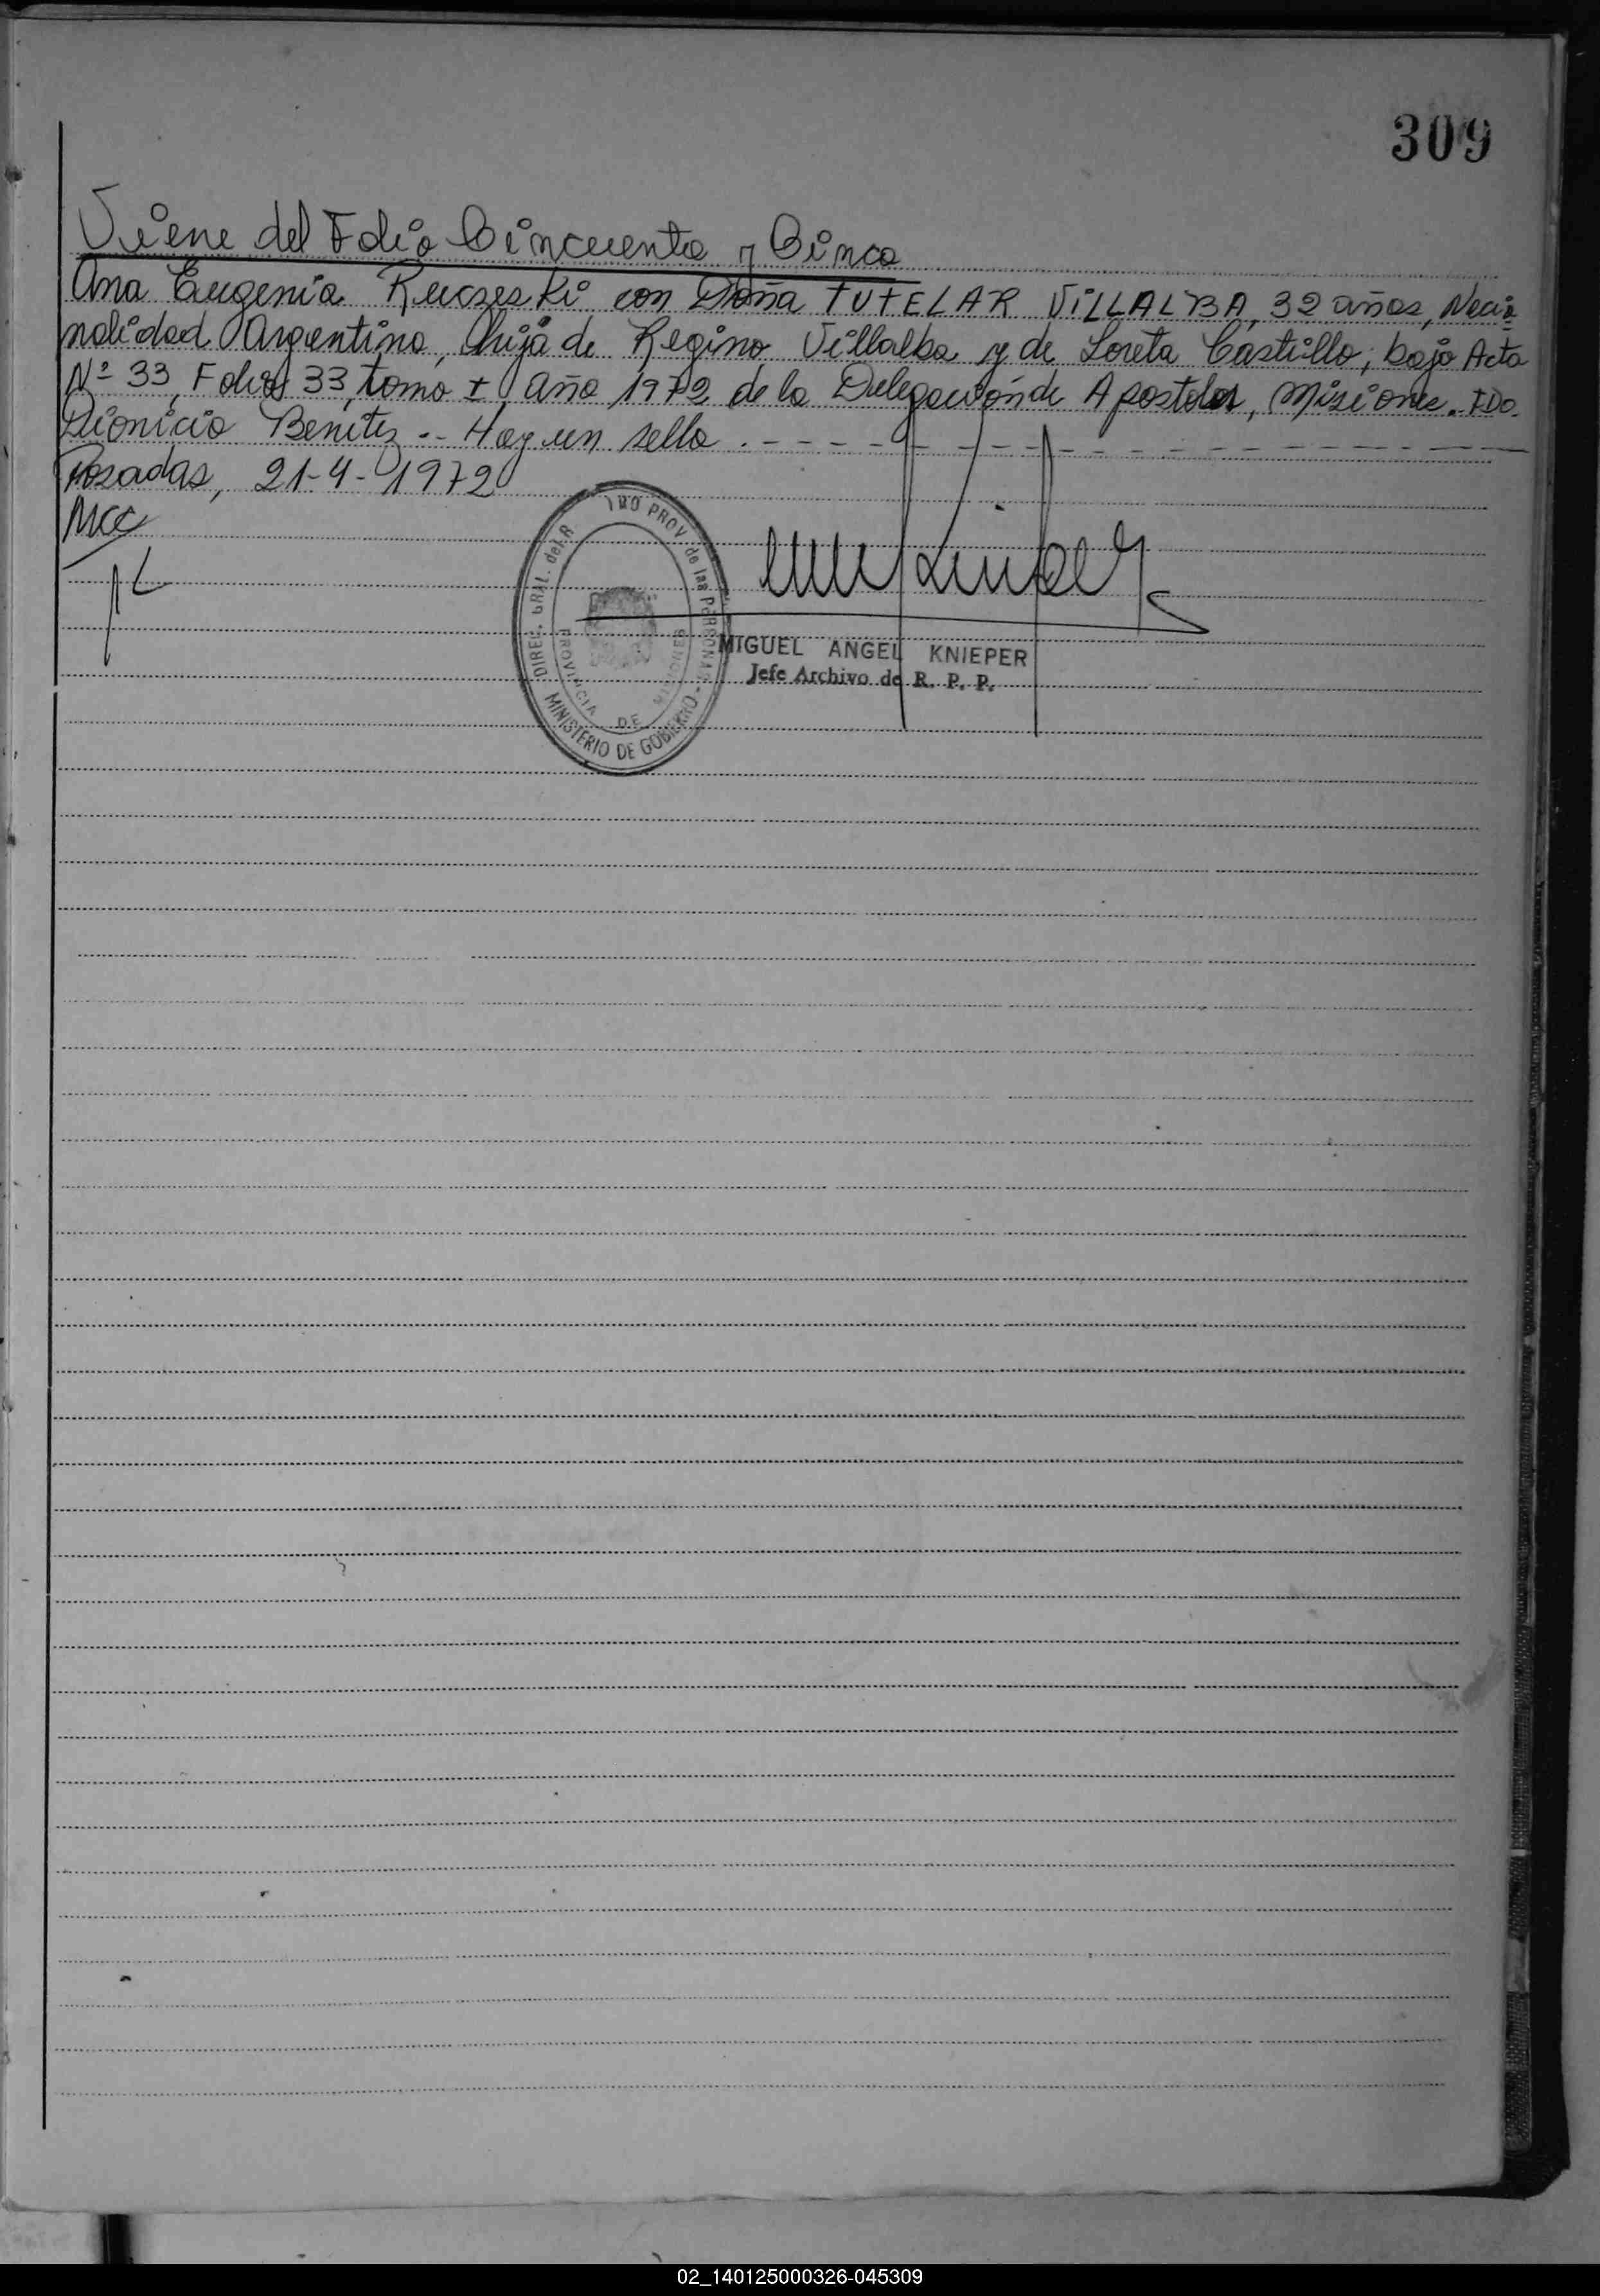 309
Viene del Folio Cincuenta y Cinco
Ana Eugenia Ruczeski con Doña TUTELAR VILLALBA, 32 años, Nacio
nalidad Argentina, hija de Regino Villalba y de Loreta Castillo; bajo Acta
Nº 33, Folio 33, tomo I, año 1972 de la Delegación de Apostoles, Misiones. FDO.
Dionicio Benitez.- Hay un sello.-------
Posadas, 21-4-1972
MCC
DIREC. GRAL. del R TRO PROV de las PERSONAS - MINISTERIO DE GOBIERNO
PROVINCIA DE MISIONES
MIGUEL ANGEL KNIEPER
Jefe Archivo de R. P. P.
02_140125000326-045309